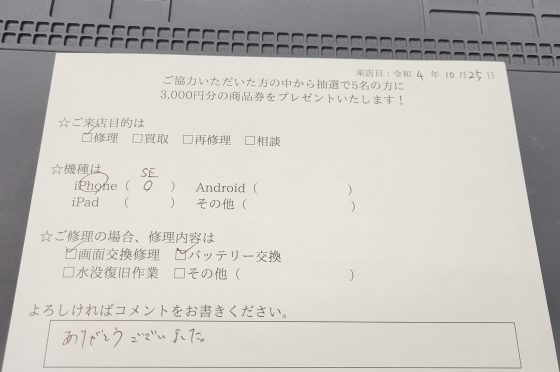 来店日：令和 4 年 10 月 25 日
ご協力いただいた方の中から抽選で5名の方に
3,000円分の商品券をプレゼントいたします！
☆ご来店目的は
☑修理 □買取 □再修理 □相談
☆機種は
SE
iPhone（ 0 ） Android（ ）
iPad （ ） その他（ ）
☆ご修理の場合、修理内容は
☑画面交換修理 ☑バッテリー交換
□水没復旧作業 □その他（ ）
よろしければコメントをお書きください。
ありがとうございました。